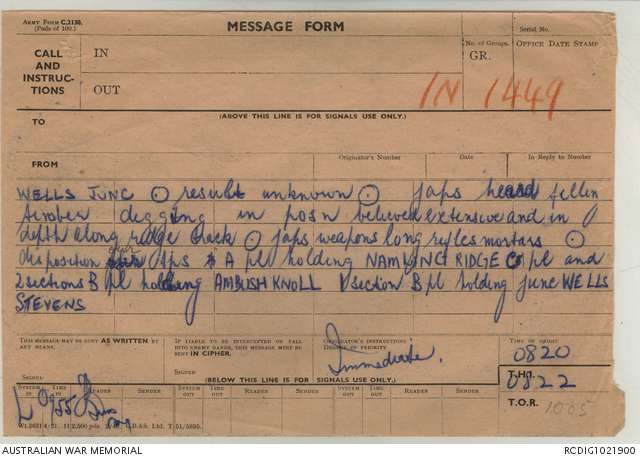 ARMY FORM C.2136.
(Pads of 100.)
MESSAGE FORM
Serial No.
CALL
AND
INSTRUC-
TIONS
IN
OUT
No. of Groups.
GR.
OFFICE DATE STAMP
IN 1449
(ABOVE THIS LINE IS FOR SIGNALS USE ONLY.)
TO
FROM
Originator's Number
Date
In Reply to Number
WELLS JUNC ⊙ result unknown ⊙ japs heard fellin
timber digging in posn believed extensive and in
depth along ridge track ⊙ japs weapons long rifles mortars ⊙
disposition own tps A pl holding NAMLING RIDGE C pl and
2 sections B pl holding AMBUSH KNOLL 1 section B pl holding junc WELLS
STEVENS
THIS MESSAGE MAY BE SENT AS WRITTEN BY
ANY MEANS.
SIGNED
IF LIABLE TO BE INTERCEPTED OR FALL
INTO ENEMY HANDS, THIS MESSAGE MUST BE
SENT IN CIPHER.
SIGNED
ORIGINATOR'S INSTRUCTIONS
DEGREE OF PRIORITY
Immediate.
TIME OF ORIGIN
0820
T.H.I.
0822
T.O.R.
1005
(BELOW THIS LINE IS FOR SIGNALS USE ONLY.)
SYSTEM IN
TIME IN
READER
SENDER
SYSTEM OUT
TIME OUT
READER
SENDER
SYSTEM OUT
TIME OUT
READER
SENDER
0955
AUSTRALIAN WAR MEMORIAL
RCDIG1021900